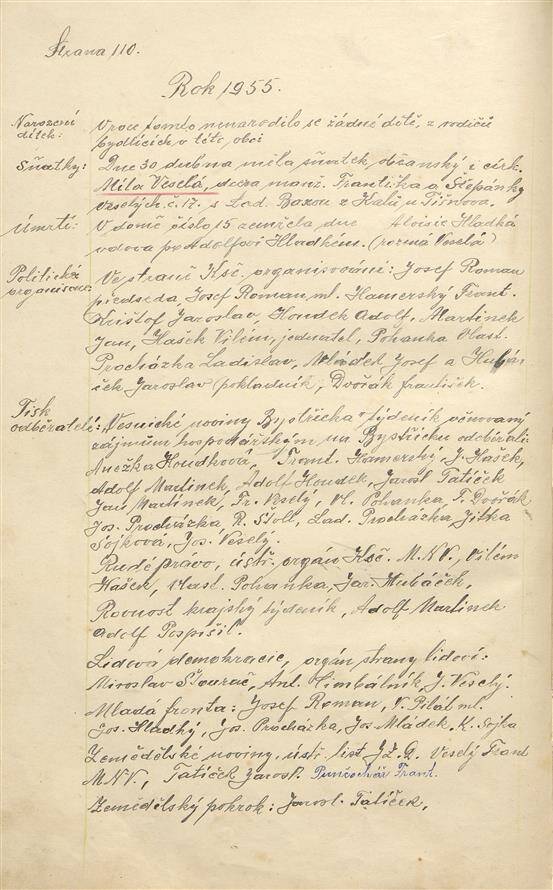 Strana 110.
Rok 1955.
Narození
dítek:
V roce tomto nenarodilo se žádné dítě, z rodičů
bydlících v této obci
Sňatky:
Dne 30 dubna měla sňatek občanský i círk.
Mila Veselá, dcera manž. Františka a Štěpánky
Veselých č. 17. s Lad. Bazou z Kalů u Tišnova.
Úmrtí:
V domě číslo 15 zemřela dne Aloisie Hladká
vdova po Adolfovi Hladkém. (rozená Veselá)
Politická
organisace:
Ve straně Ksč. organisováni: Josef Roman
předseda, Josef Roman, ml. Hamerský Frant.
Krištof Jaroslav, Houdek Adolf, Martinek
Jan, Hašek Vilém, jednatel, Pohanka Vlast.
Procházka Ladislav, Mládek Josef a Hubá-
ček Jaroslav (pokladník, Dvořák František.
Tisk
odběratelé:
"Vesnické noviny Bystřicka" týdeník věnovaný
zájmům hospodářským na Bystřicku odebírali:
Anežka Houdková, Frant. Hamerský, J. Hašek,
Adolf Martinek, Adolf Houdek, Jarosl Tatíček
Jan Martinek, Fr. Veselý, Vl. Pohanka F. Dvořák
Jos. Procházka, R. Štoll, Lad. Procházka, Jitka
Sojková, Jos. Veselý.
Rudé právo, ústř. orgán Ksč. M.N.V., Vilém
Hašek, Vlast. Pohanka, Jar. Hubáček,
Rovnost krajský týdeník, Adolf Martinek
Adolf Pospíšil.
Lidová demokracie, orgán strany lidové:
Miroslav Štourač, Ant. Cimbálník, J. Veselý.
Mladá fronta: Josef Roman, V. Pilát ml.
Jos. Hladký, Jos. Procházka, Jos. Mládek, K. Sojka
Zemědělské noviny, ústř. list J.Z.D. Veselý Frant
M.N.V., Tatíček Jarosl. Punčochář Frant.
Zemědělský pokrok: Jarosl. Tatíček,